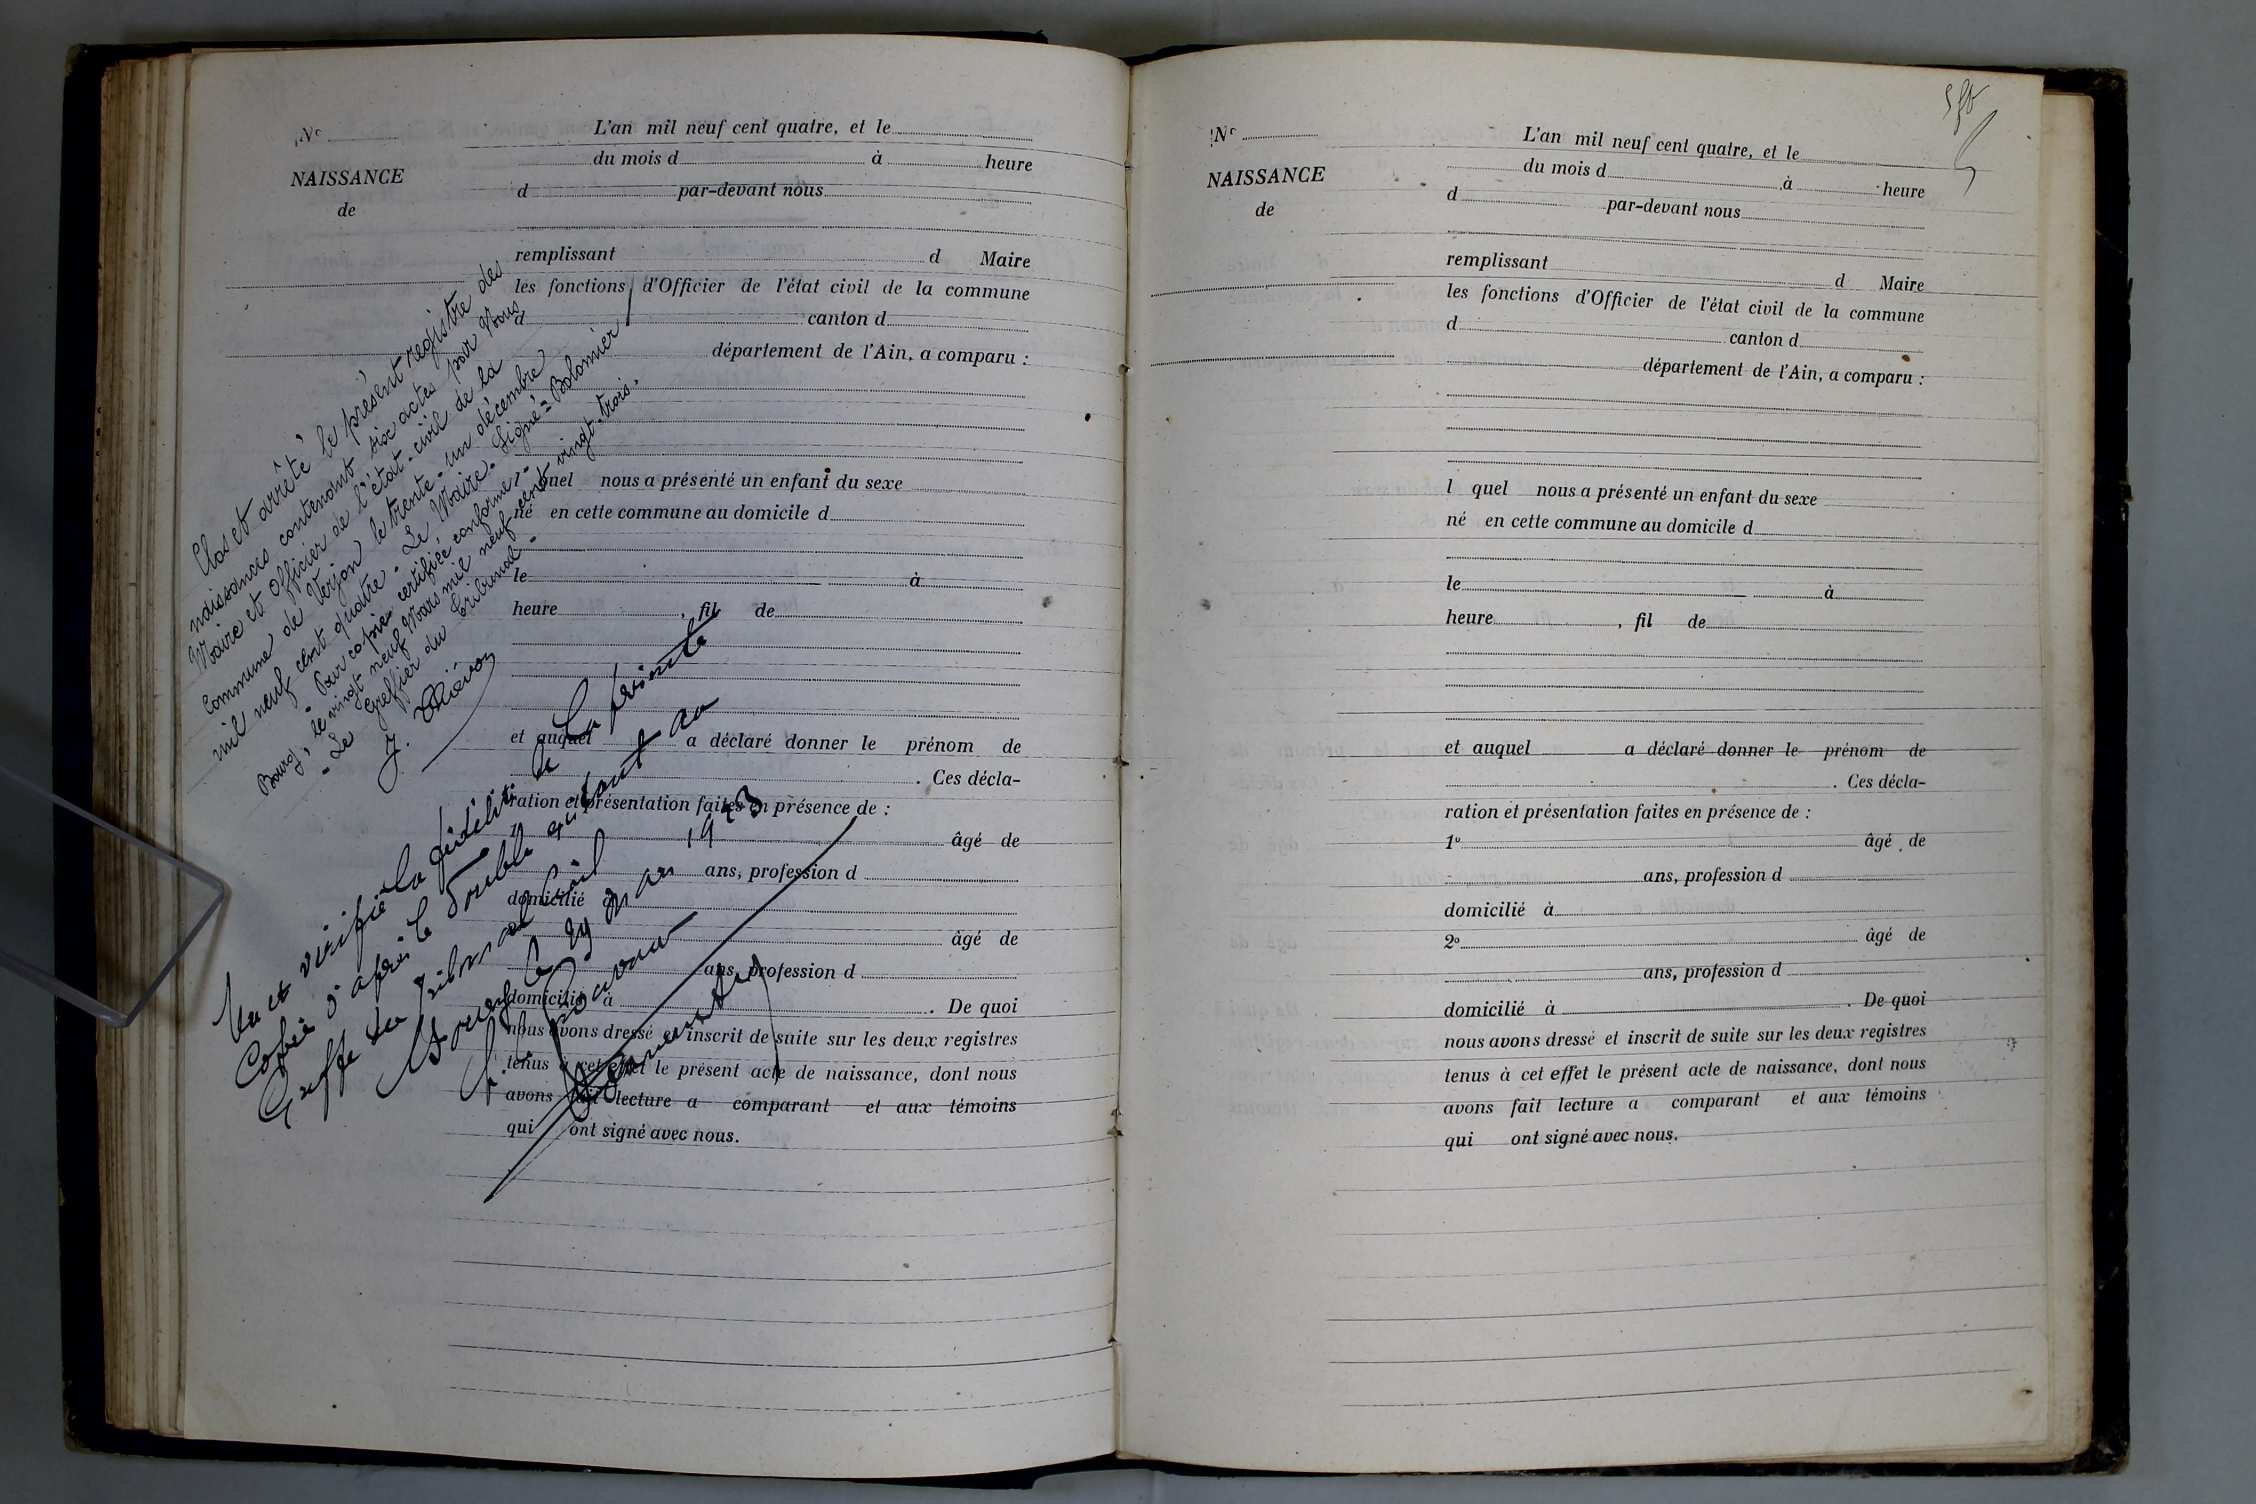 N°
NAISSANCE
de
L'an mil neuf cent quatre, et le
du mois d à heure
d par-devant nous
remplissant d Maire
les fonctions d'Officier de l'état civil de la commune
d canton d
département de l'Ain, a comparu :
quel nous a présenté un enfant du sexe
né en cette commune au domicile d
le à
heure , fil de
et auquel a déclaré donner le prénom de
. Ces décla-
ration et présentation faites en présence de :
âgé de
ans, profession d
domicilié à
âgé de
ans, profession d
domicilié à . De quoi
nous avons dressé et inscrit de suite sur les deux registres
tenus à cet effet le présent acte de naissance, dont nous
avons fait lecture a comparant et aux témoins
qui ont signé avec nous.
Clos et arrêté le présent registre des
naissances contenant six actes par Nous
Maire et Officier de l'état-civil de la
Commune de Verjon le trente-un décembre
mil neuf cent quatre. Le Maire. Signé = Bolomier
Pour copie certifiée conforme.-
Bourg, le vingt neuf Mars mil neuf cent vingt-trois.
- Le Greffier du Tribunal -
Vu et vérifié la fidélité de la présente
Copie d'après le double existant au
Greffe du Tribunal Civil
Bourg le 29 Mars 1923
N°
NAISSANCE
de
L'an mil neuf cent quatre, et le
du mois d à heure
d par-devant nous
remplissant d Maire
les fonctions d'Officier de l'état civil de la commune
d canton d
département de l'Ain, a comparu :
l quel nous a présenté un enfant du sexe
né en cette commune au domicile d
le à
heure , fil de
et auquel a déclaré donner le prénom de
. Ces décla-
ration et présentation faites en présence de :
1° âgé de
ans, profession d
domicilié à
2° âgé de
ans, profession d
domicilié à . De quoi
nous avons dressé et inscrit de suite sur les deux registres
tenus à cet effet le présent acte de naissance, dont nous
avons fait lecture a comparant et aux témoins
qui ont signé avec nous.